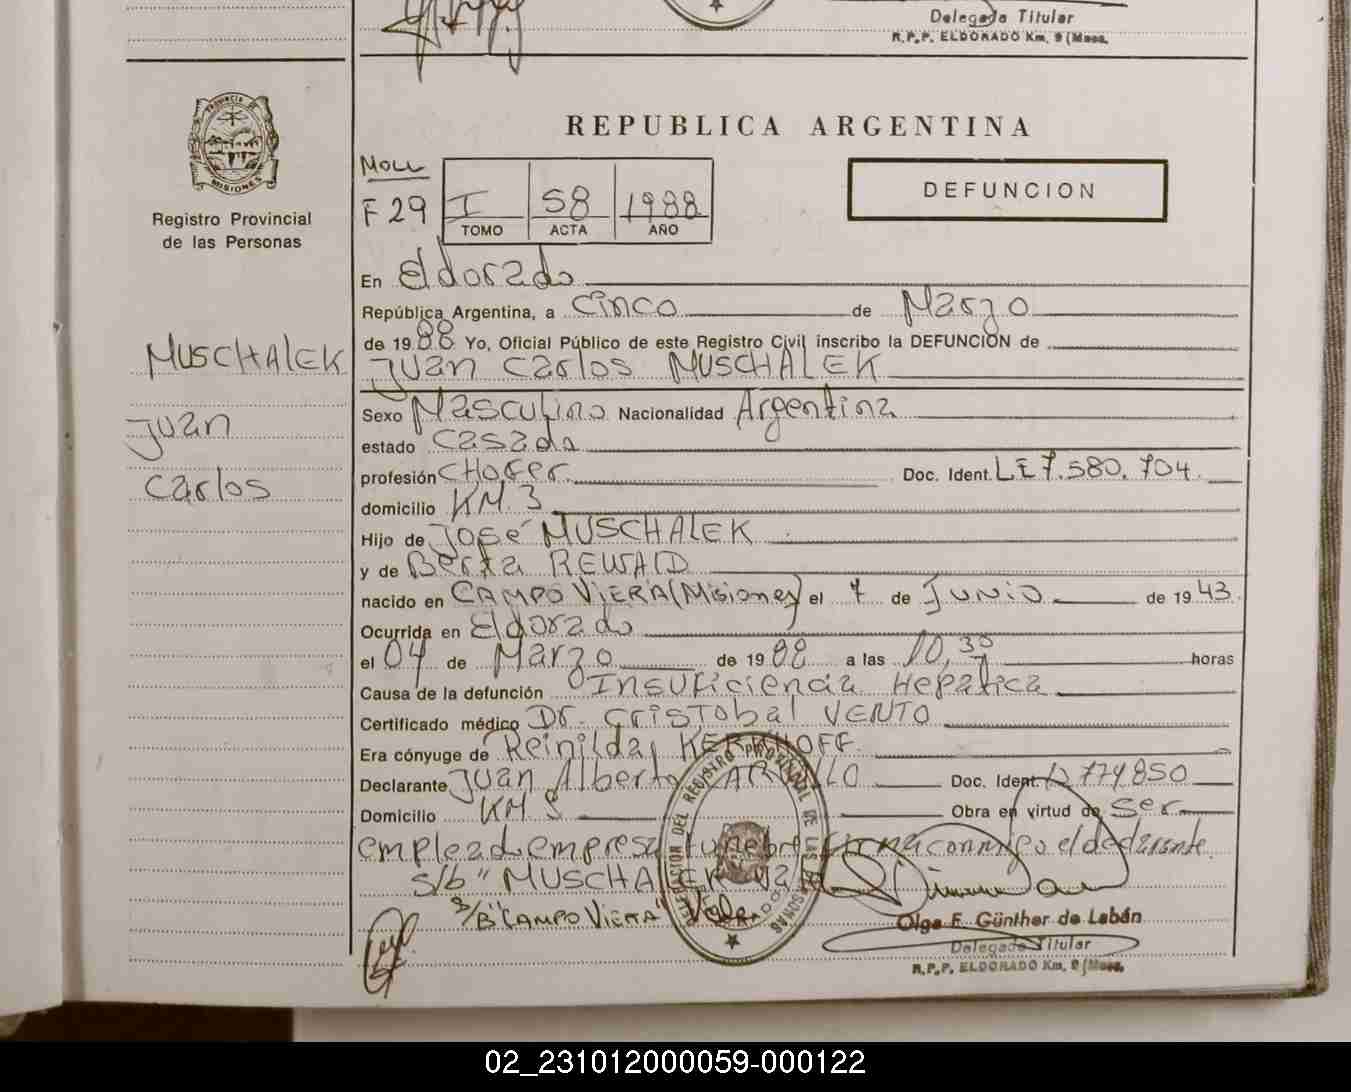 Delegada Titular
R.P.P. ELDORADO Km. 9 (Mnes.
PROVINCIA DE
MISIONES
Registro Provincial
de las Personas
REPUBLICA ARGENTINA
F 29
I S8 1988
TOMO ACTA AÑO
DEFUNCION
En Eldorado
República Argentina, a Cinco de Marzo
de 1988 Yo, Oficial Público de este Registro Civil inscribo la DEFUNCION de
MUSCHALEK
Juan
Carlos
Juan Carlos MUSCHALEK
Sexo Masculino Nacionalidad Argentina
estado Casado
profesión CHOFER Doc. Ident. LE 7.580.704
domicilio KM. 3
Hijo de José MUSCHALEK
y de Berta REWALD
nacido en CAMPO VIERA (Misiones) el 7 de Junio de 1943
Ocurrida en Eldorado
el 04 de Marzo de 1988 a las 10,30 horas
Causa de la defunción Insuficiencia Hepatica
Certificado médico Dr. Cristobal VENTO
Era cónyuge de Reinilda KERKHOFF
Declarante Juan Alberto Doc. Ident. 774850
Domicilio KM 5 Obra en virtud de ser
emplead empresa funebre firma conmigo el declarante.
s/b "MUSCHALEK"
s/B "CAMPO VIERA" Vale
DELEGACION DEL REGISTRO PROVINCIAL DE LAS PERSONAS
Olga F. Günther de Labán
Delegada Titular
R.P.P. ELDORADO Km. 9 (Mnes.
02_231012000059-000122